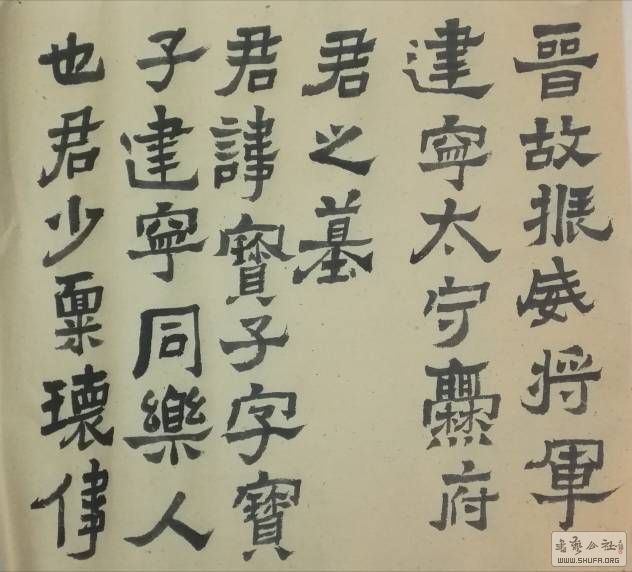 晉故振威将軍
建寧太守爨府
君之墓
君諱寶子字寶
子建寧同樂人
也君少稟瓌偉
书艺公社
WWW.SHUFA.ORG